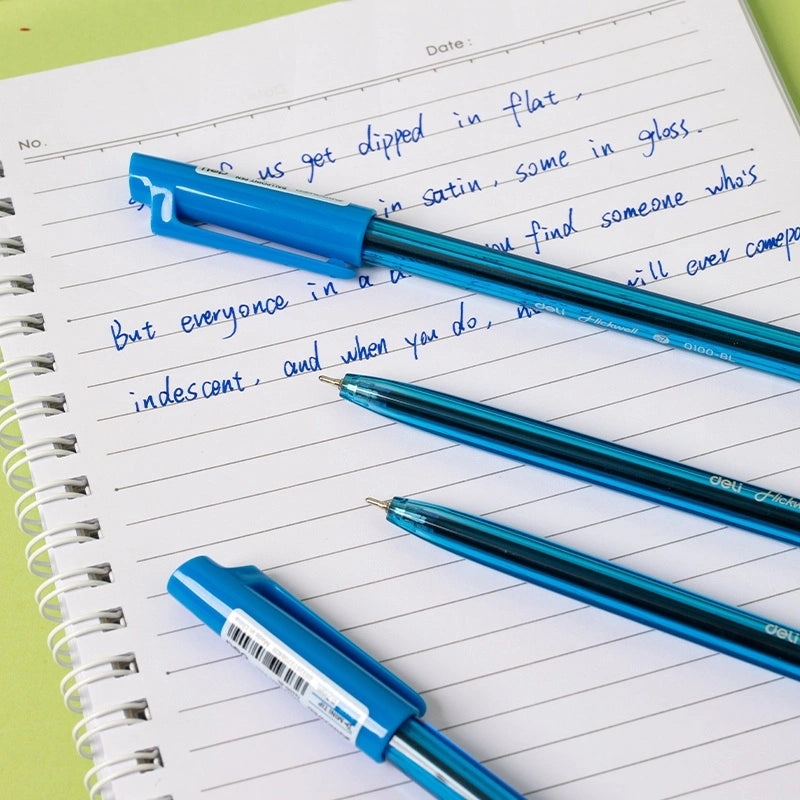 Date:
No.
us get dipped in flat,
in satin, some in gloss.
find someone who's
But everyonce in a will ever compa
indescent, and when you do,
deli Flickwell Q100-BL
deli Flickw
deli